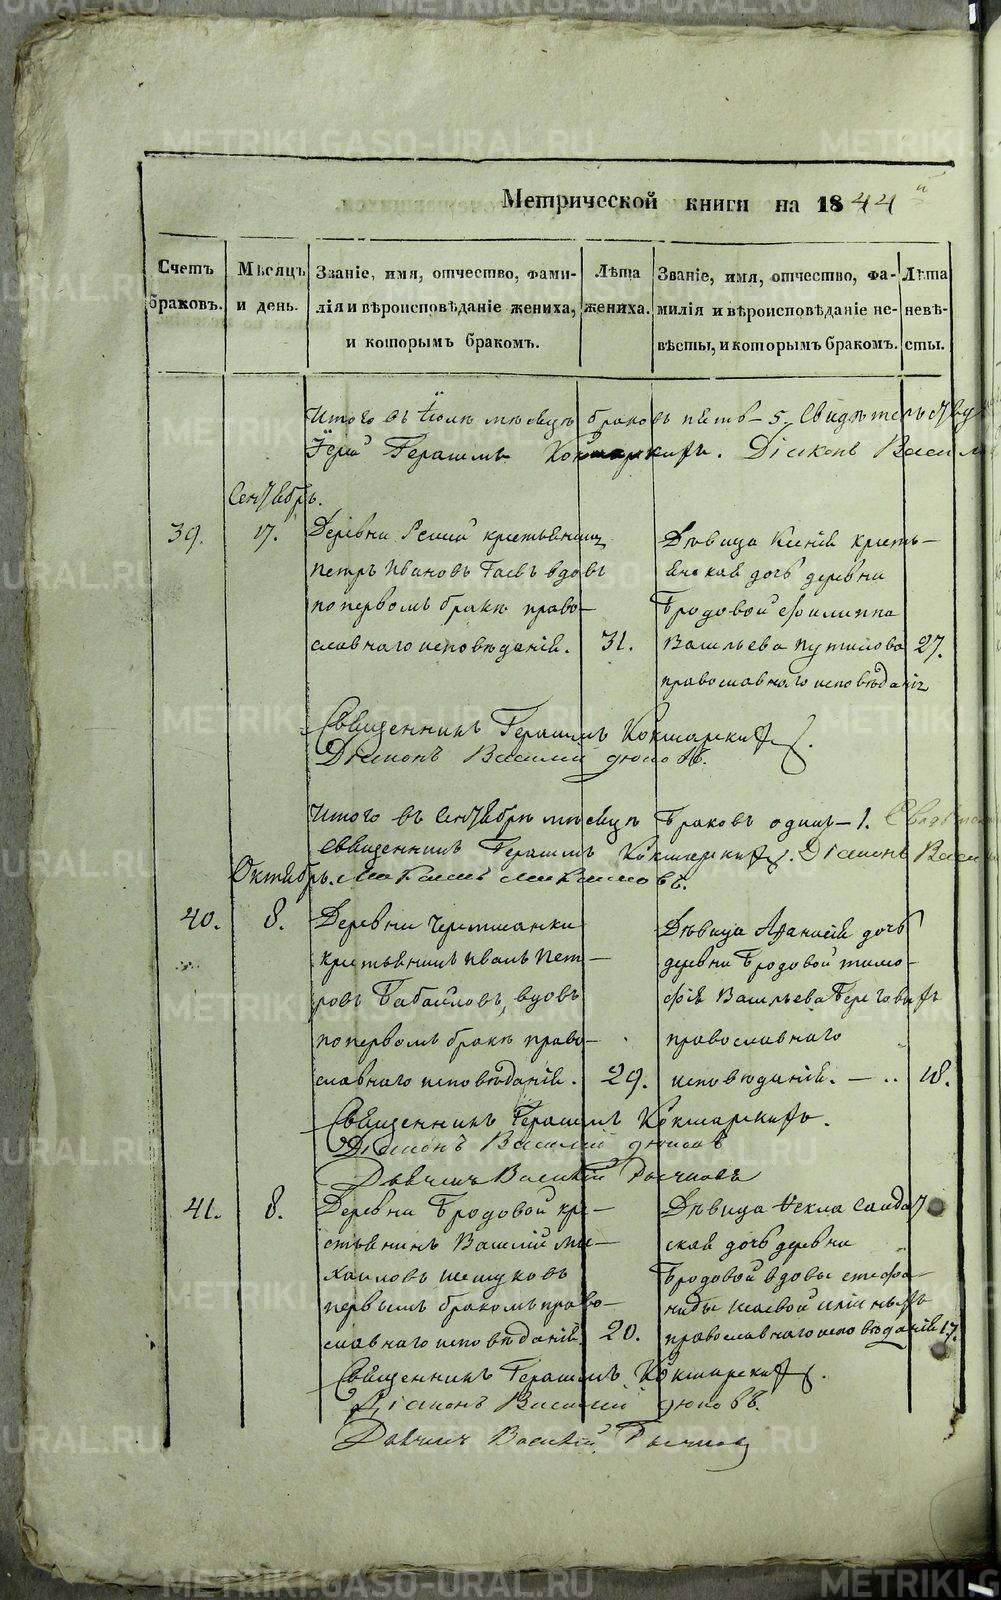 Метрической книги на 1844й
Счетъ браковъ.
Мѣсяцъ и день.
Званіе, имя, отчество, фами-
лія и вѣроисповѣданіе жениха,
и которымъ бракомъ.
Лѣта
жениха.
Званіе, имя, отчество, фа-
милія и вѣроисповѣданіе не-
вѣсты, и которымъ бракомъ.
Лѣта
невѣ-
сты.
Итого въ Іюлѣ мѣсяцѣ браковъ пять – 5.
Іерей Герасимъ Кокшарскихъ. Діаконъ Васил
Сентябрь.
39. 17.
Деревни крестьянинъ
Петръ Ивановъ Гаевъ вдовъ
по первомъ бракѣ право-
славнаго исповѣданія. 31.
Дѣвица Ксенія кресть-
янская дочь деревни
Бродовой Филиппа
Васильева Путилова 27.
православнаго исповѣданія
Священникъ Герасимъ Кокшарскихъ.
Діаконъ Василій
Итого въ Сентябрѣ мѣсяцѣ браковъ одинъ – 1.
Священникъ Герасимъ Кокшарскихъ. Діаконъ Васи
Октябрь.
40. 8.
Деревни Черемшанки
крестьянинъ Иванъ Пет-
ровъ Бабайловъ, вдовъ
по первомъ бракѣ право-
славнаго исповѣданія. 29.
Дѣвица Афанасія дочь
деревни Бродовой Тимо-
фея Васильева Береговыхъ
православнаго
исповѣданія. – .. 18.
Священникъ Герасимъ Кокшарскихъ.
Діаконъ Василій
Василій
41. 8.
Деревни Бродовой кре-
стьянинъ Василій Ми-
хайловъ
первымъ бракомъ право-
славнаго исповѣданія. 20.
Дѣвица Ѳекла солдат-
ская дочь деревни
Бродовой вдовы Стефа-
ниды Исаевой
православнаго исповѣданія 17.
Священникъ Герасимъ Кокшарскихъ.
Діаконъ Василій
Василій
METRIKI.GASO-URAL.RU